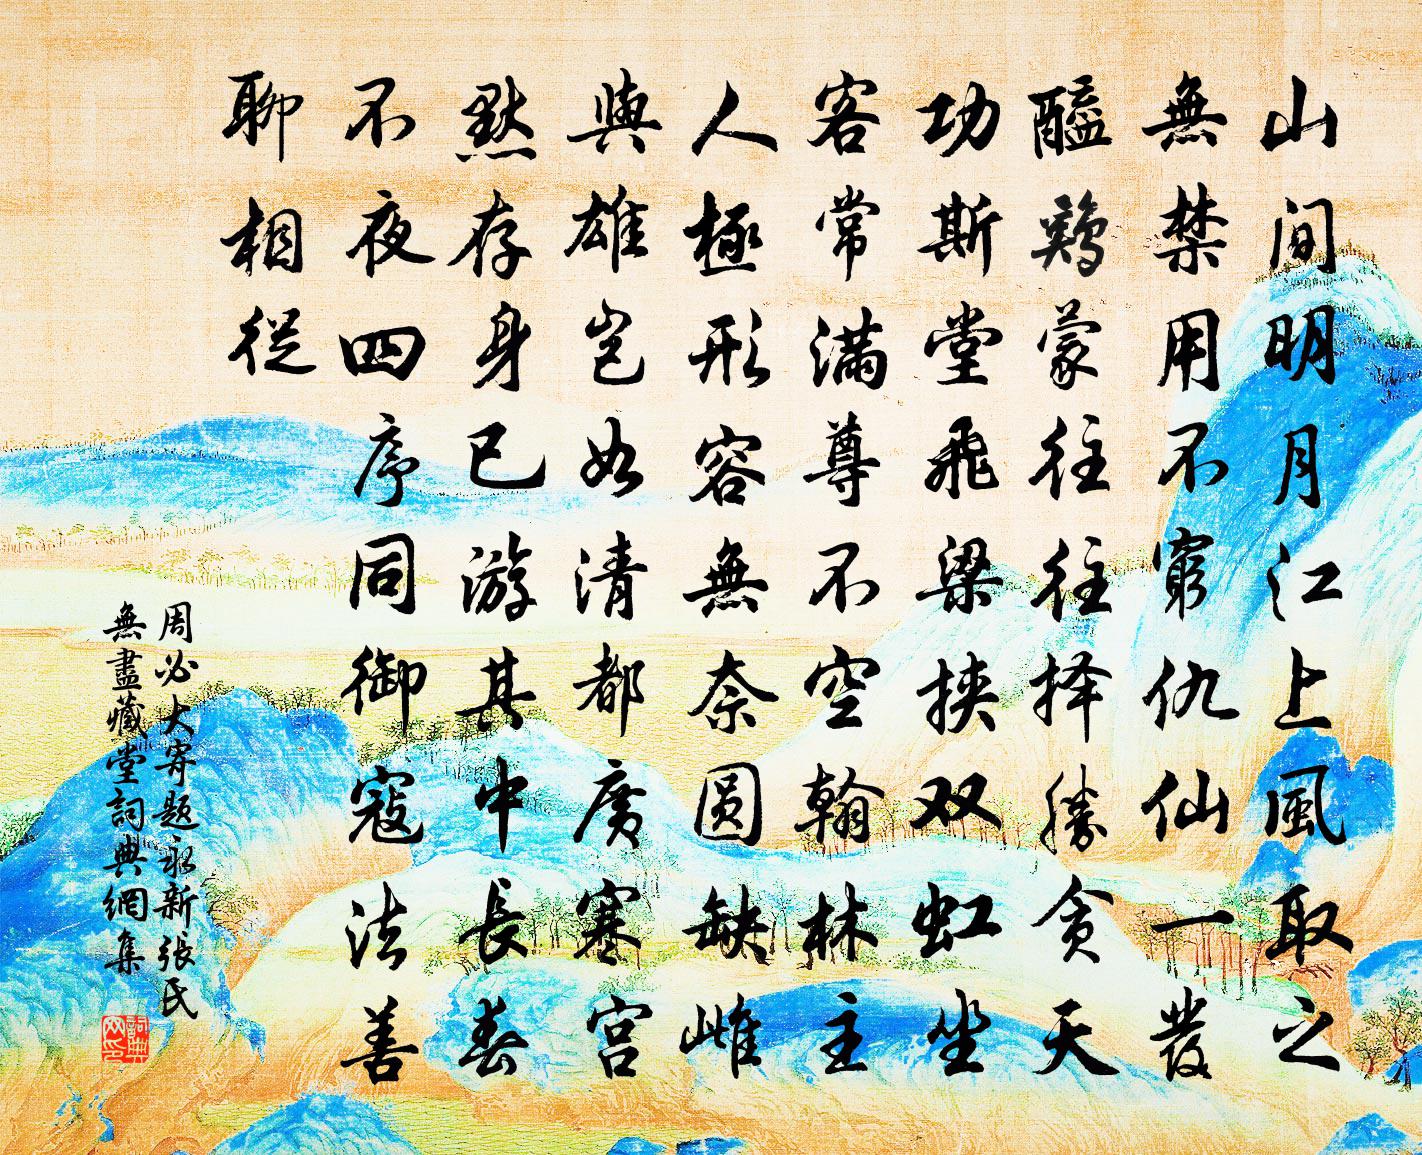 山间明月江上風取之
無禁用不窮仇仙一發
醯鶏蒙往往择勝贪天
功斯堂飛梁挟双虹坐
客常滿尊不空翰林主
人極形容無奈圆缺雌
與雄岂如清都廣寒宫
黙存身已游其中長春
不夜四序同御寇法善
聊相從
周必大寄题永新張氏
無盡藏堂詞典網集